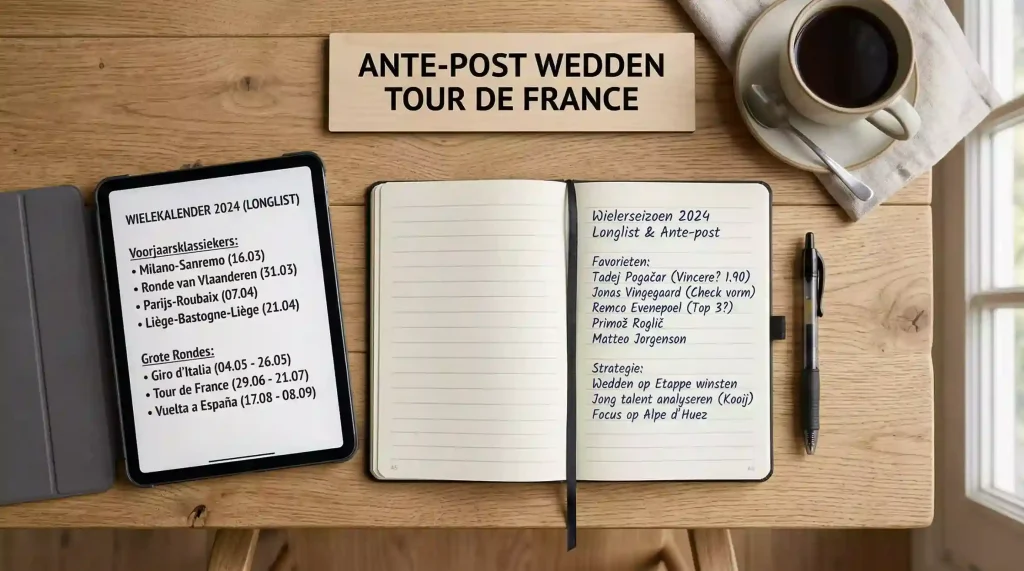 ANTE-POST WEDDEN
TOUR DE FRANCE
WIELEKALENDER 2024 (LONGLIST)
Voorjaarsklassiekers:
• Milano-Sanremo (16.03)
• Ronde van Vlaanderen (31.03)
• Parijs-Roubaix (07.04)
• Liège-Bastogne-Liège (21.04)
Grote Rondes:
• Giro d'Italia (04.05 - 26.05)
• Tour de France (29.06 - 21.07)
• Vuelta a España (17.08 - 08.09)
Wielerseizoen 2024
Longlist & Ante-post
Favorieten:
Tadej Pogačar (Vincere? 1.90)
Jonas Vingegaard (Check vorm)
Remco Evenepoel (Top 3?)
Primož Roglič
Matteo Jorgenson
Strategie:
Wedden op Etappe winsten
Jong talent analyseren (Kooij)
Focus op Alpe d'Huez